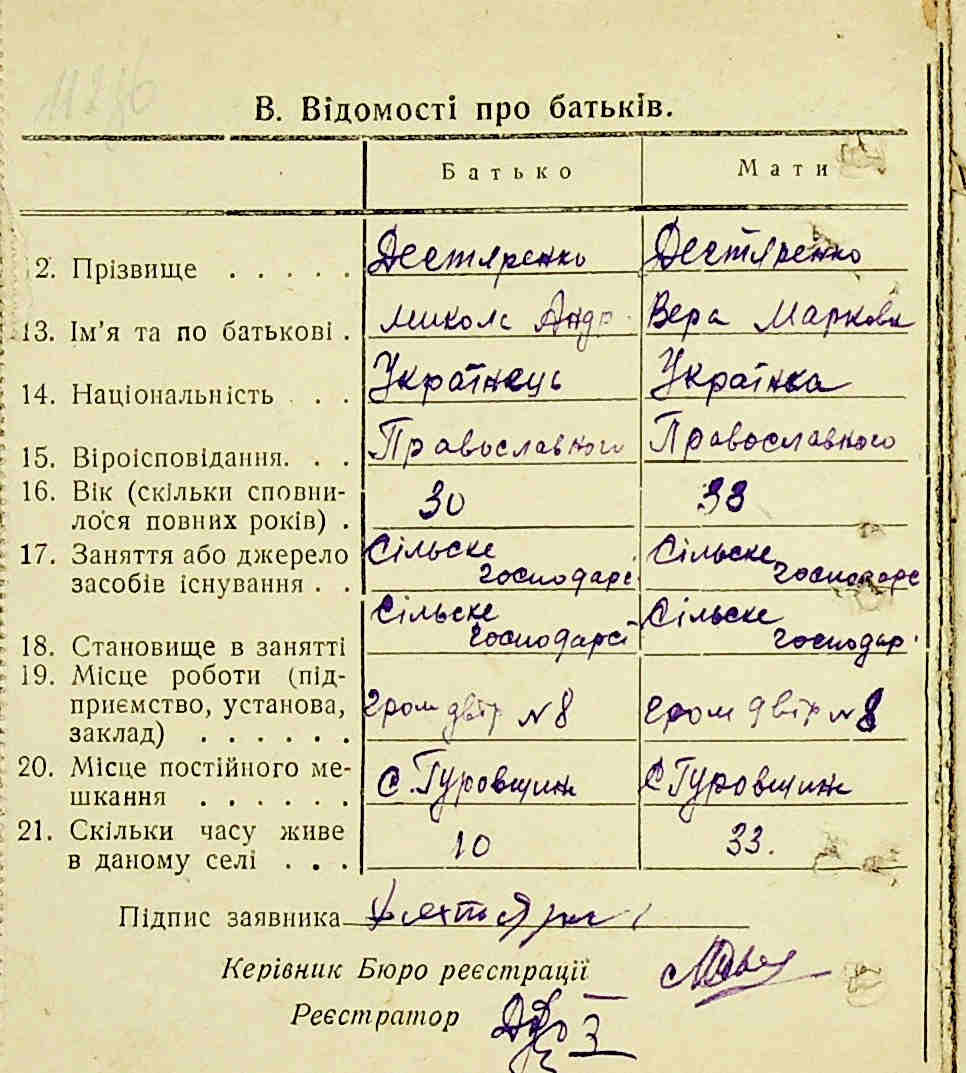 В. Відомості про батьків.
Батько Мати
2. Прізвище . . . . . Дегтяренко Дегтяренко
13. Ім'я та по батькові . Микола Андр Вера Маркова
14. Національність . . . Українець Українка
15. Віроісповідання. . . Православного Православного
16. Вік (скільки сповни-
лося повних років) . 30 33
17. Заняття або джерело Сільске Сільске
засобів існування . . господарс господарс
Сільске Сільске
18. Становище в занятті господарст господар
19. Місце роботи (під-
приємство, установа, гром двір №8 гром двір №8
заклад) . . . . . .
20. Місце постійного ме- с. Гуровщин с Гуровщин
шкання . . . . . .
21. Скільки часу живе 10 33.
в даному селі . . .
Підпис заявника
Керівник Бюро реєстрації
Реєстратор